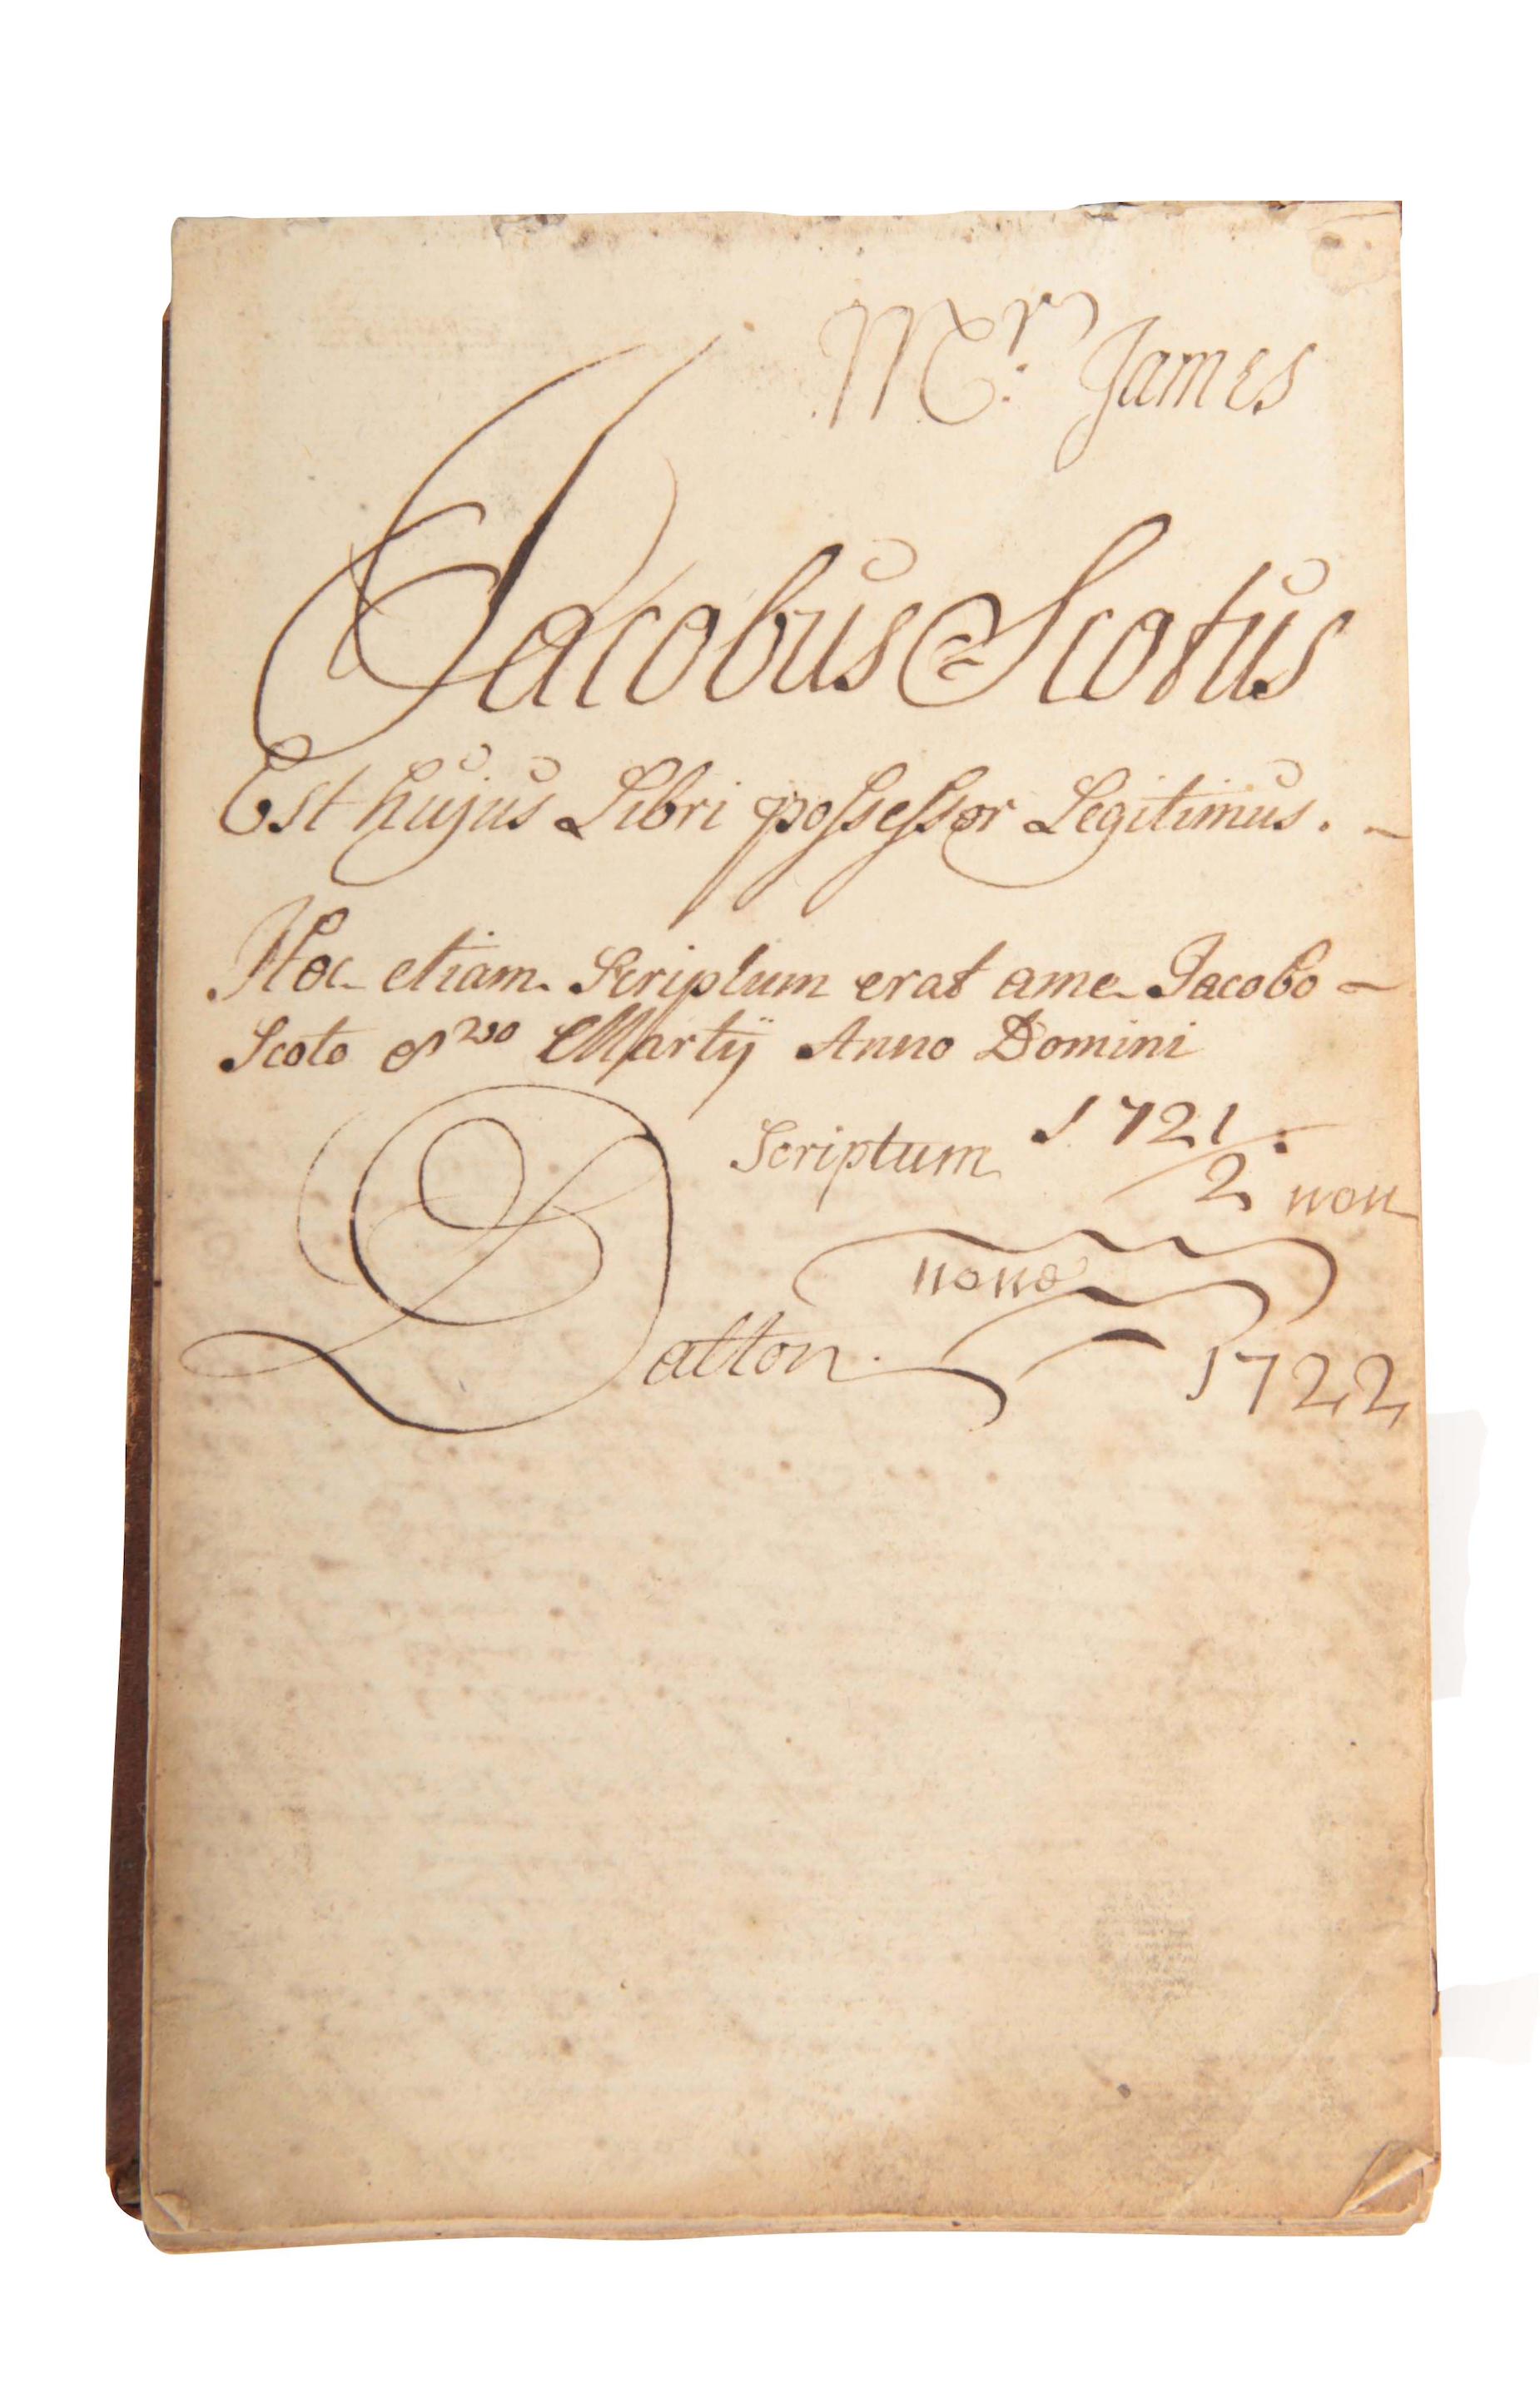 Mr: James
Jacobus Scotus
Est hujus Libri possessor Legitimus.
Hoc etiam Scriptum erat a me Jacobo
Scoto 8vo Martij Anno Domini
1721/2
Scriptum non
nono
Datton. 1722